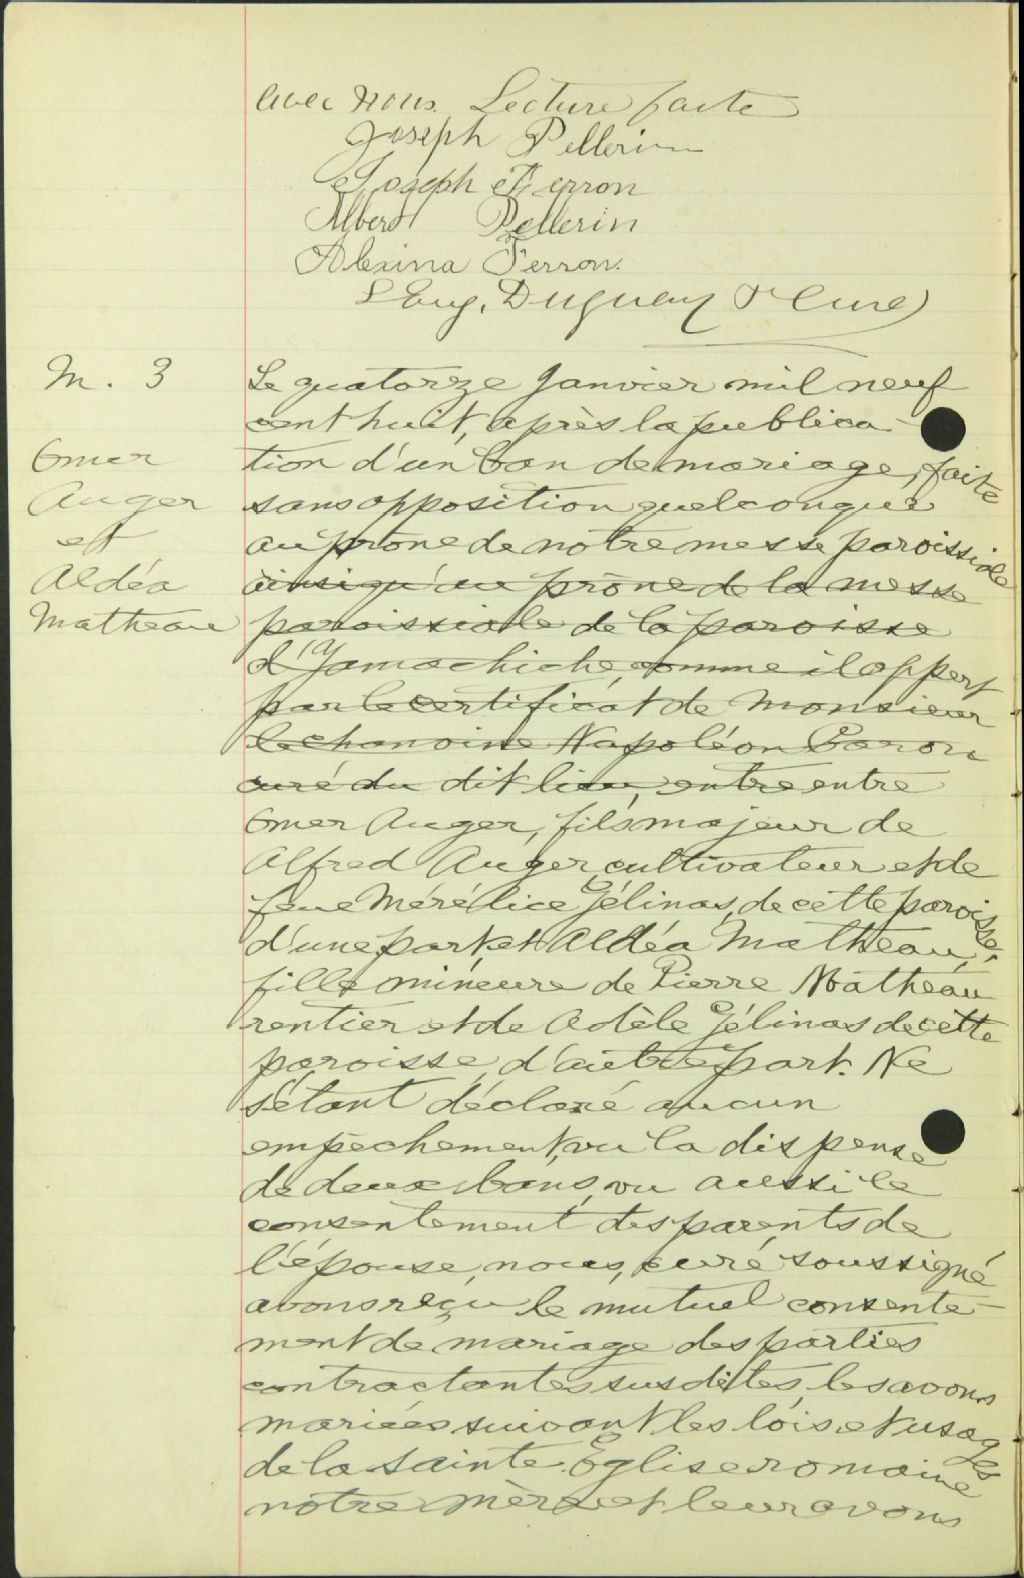 avec nous. Lecture faite
Joseph Pellerin
Joseph Ferron
Albert Pellerin
Alexina Ferron.
L Eug. Duguay Ptre Curé
M. 3
Omer
Auger
et
Aldéa
Matheau
Le quatorze Janvier mil neuf
cent huit, après la publica-
tion d'un ban de mariage, faite
sans opposition quelconque
au prône de notre messe paroissiale
ainsi qu'au prône de la messe
paroissiale de la paroisse
d'Yamachiche, comme il appert
par le certificat de Monsieur
le chanoine Napoléon Caron
curé du dit lieu, entre entre
Omer Auger, fils majeur de
Alfred Auger, cultivateur et de
feue Mérélice Gélinas, de cette paroisse,
d'une part, et Aldéa Matheau,
fille mineure de Pierre Matheau
rentier et de Adèle Gélinas de cette
paroisse, d'autre part. Ne
s'étant déclaré aucun
empêchement, vu la dispense
de deux bans, vu aussi le
consentement des parents de
l'épouse, nous, curé soussigné
avons reçu le mutuel consente-
ment de mariage des parties
contractantes susdites, les avons
mariées suivant les lois et usages
de la sainte Église romaine
notre mère et leur avons